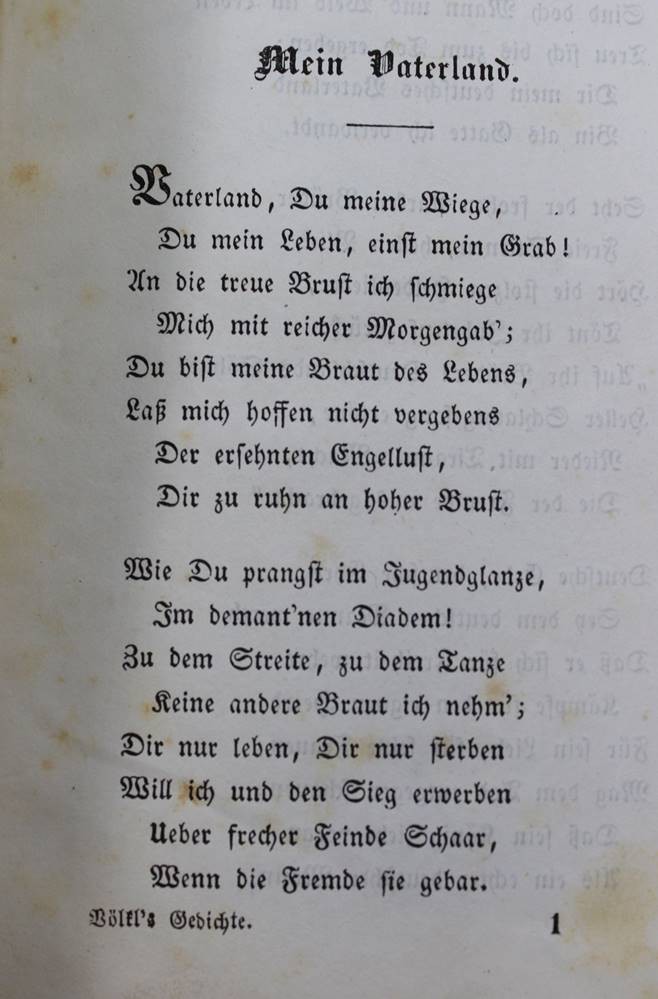 Mein Vaterland.
Vaterland, Du meine Wiege,
Du mein Leben, einst mein Grab!
An die treue Brust ich schmiege
Mich mit reicher Morgengab';
Du bist meine Braut des Lebens,
Laß mich hoffen nicht vergebens
Der ersehnten Engellust,
Dir zu ruhn an hoher Brust.
Wie Du prangst im Jugendglanze,
Im demant'nen Diadem!
Zu dem Streite, zu dem Tanze
Keine andere Braut ich nehm';
Dir nur leben, Dir nur sterben
Will ich und den Sieg erwerben
Ueber frecher Feinde Schaar,
Wenn die Fremde sie gebar.
Völkl's Gedichte. 1